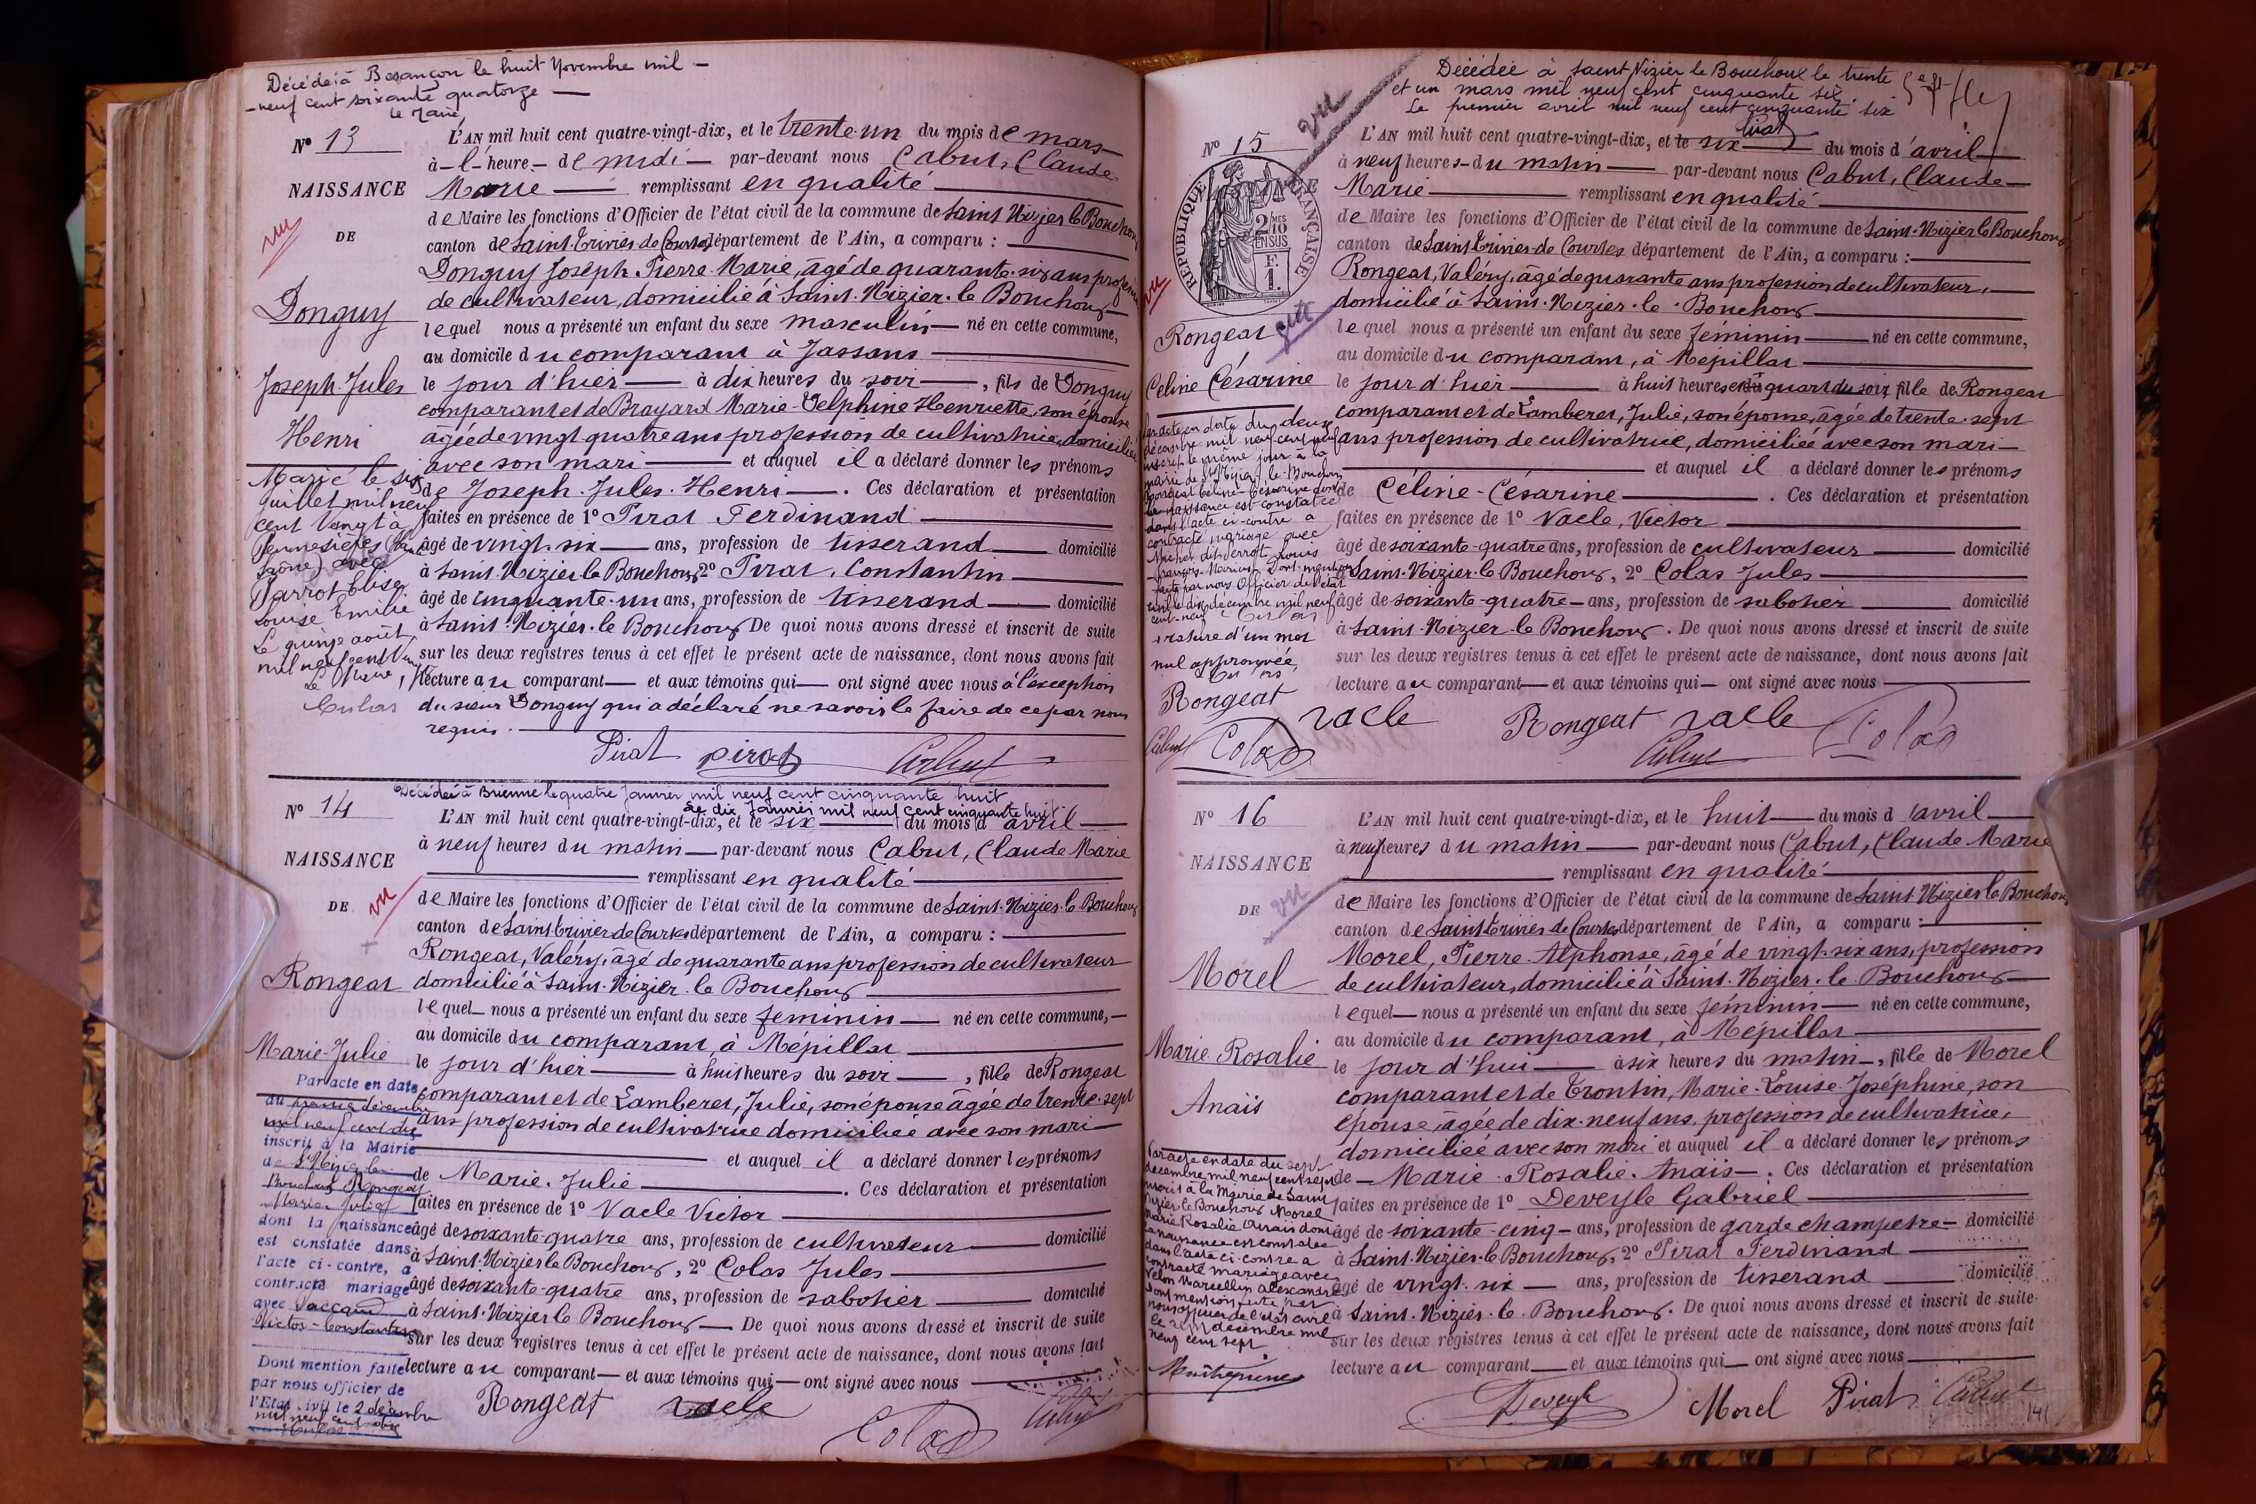 Décédé à Besançon le huit Novembre mil
neuf cent soixante quatorze
le Maire
Nº 13
NAISSANCE
DE
vu
Donguy
Joseph-Jules
Henri
L'AN mil huit cent quatre-vingt-dix, et le trente-un du mois de mars
à l'heure de midi par-devant nous Cabut, Claude
Marie remplissant en qualité
de Maire les fonctions d'Officier de l'état civil de la commune de Saint-Nizier le Bouchoux
canton de Saint-Trivier-de-Courtes département de l'Ain, a comparu :
Donguy Joseph Pierre-Marie, âgé de quarante-six ans profession
de cultivateur, domicilié à Saint-Nizier-le-Bouchoux
lequel nous a présenté un enfant du sexe masculin né en cette commune,
au domicile du comparant à Jassans
le jour d'hier à dix heures du soir, fils de Donguy
comparant et de Brayard Marie-Delphine Henriette, son épouse
âgée de vingt quatre ans profession de cultivatrice, domiciliée
avec son mari et auquel il a déclaré donner les prénoms
de Joseph-Jules-Henri. Ces déclaration et présentation
faites en présence de 1º Pirat Ferdinand
âgé de vingt-six ans, profession de tisserand domicilié
à Saint-Nizier le Bouchoux 2º Pirat, Constantin
âgé de cinquante-un ans, profession de tisserand domicilié
à Saint-Nizier-le-Bouchoux De quoi nous avons dressé et inscrit de suite
sur les deux registres tenus à cet effet le présent acte de naissance, dont nous avons fait
lecture au comparant et aux témoins qui ont signé avec nous à l'exception
du sieur Donguy qui a déclaré ne savoir le faire de ce par nous
requis.
Pirat Pirat Cabut
Marié le six
Juillet mil neuf
cent vingt à
Saône) avec
Parrot Elise
Louise Emilie
Le quinze août
mil neuf cent vingt
Le Maire,
Nº 14
NAISSANCE
DE
vu
Rongeat
Marie-Julie
Décédée à Brienne le quatre Janvier mil neuf cent cinquante huit
Le dix Janvier mil neuf cent cinquante huit
L'AN mil huit cent quatre-vingt-dix, et le six du mois d'avril
à neuf heures du matin par-devant nous Cabut, Claude Marie
remplissant en qualité
de Maire les fonctions d'Officier de l'état civil de la commune de Saint-Nizier-le-Bouchoux
canton de Saint-Trivier de Courtes département de l'Ain, a comparu :
Rongeat, Valéry, âgé de quarante ans profession de cultivateur
domicilié à Saint-Nizier-le Bouchoux
lequel nous a présenté un enfant du sexe féminin né en cette commune,
au domicile du comparant, à Mépillat
le jour d'hier à huit heures du soir, fille de Rongeat
comparant et de Lamberet, Julie, son épouse âgée de trente-sept
ans profession de cultivatrice domiciliée avec son mari
et auquel il a déclaré donner les prénoms
de Marie-Julie. Ces déclaration et présentation
faites en présence de 1º Vacle Victor
âgé de soixante-quatre ans, profession de cultivateur domicilié
à Saint-Nizier le Bouchoux, 2º Colas Jules
âgé de soixante-quatre ans, profession de sabotier domicilié
à Saint-Nizier le Bouchoux De quoi nous avons dressé et inscrit de suite
sur les deux registres tenus à cet effet le présent acte de naissance, dont nous avons fait
lecture au comparant et aux témoins qui ont signé avec nous
Rongeat Vacle Colas Cabut
Par acte en date
du décembre
mil neuf cent dix
inscrit à la Mairie
de St Nizier le
Bouchoux Rongeat
Marie-Julie
dont la naissance
est constatée dans
l'acte ci-contre, a
contracté mariage
avec Vaccaud
Victor-Constant
Dont mention faite
par nous officier de
l'Etat civil le 2 décembre
mil neuf cent dix
Décédée à Saint Nizier le Bouchoux le trente
et un mars mil neuf cent cinquante six.
Le premier avril mil neuf cent cinquante six
Pirat
vu
Nº 15
RÉPUBLIQUE FRANÇAISE
2 MES
10
EN SUS
F.
1.
vu
Rongeat
Céline Césarine
L'AN mil huit cent quatre-vingt-dix, et le six du mois d'avril
à neuf heures du matin par-devant nous Cabut, Claude
Marie remplissant en qualité
de Maire les fonctions d'Officier de l'état civil de la commune de Saint-Nizier le Bouchoux
canton de Saint Trivier-de Courtes département de l'Ain, a comparu :
Rongeat, Valéry, âgé de quarante ans profession de cultivateur,
domicilié à Saint-Nizier-le-Bouchoux
lequel nous a présenté un enfant du sexe féminin né en cette commune,
au domicile du comparant, à Mépillat
le jour d'hier à huit heures et quart du soir, fille de Rongeat
comparant et de Lamberet, Julie, son épouse, âgée de trente-sept
ans profession de cultivatrice, domiciliée avec son mari
et auquel il a déclaré donner les prénoms
de Céline-Césarine. Ces déclaration et présentation
faites en présence de 1º Vacle, Victor
âgé de soixante-quatre ans, profession de cultivateur domicilié
à Saint-Nizier-le Bouchoux, 2º Colas Jules
âgé de soixante-quatre ans, profession de sabotier domicilié
à Saint-Nizier-le Bouchoux. De quoi nous avons dressé et inscrit de suite
sur les deux registres tenus à cet effet le présent acte de naissance, dont nous avons fait
lecture au comparant et aux témoins qui ont signé avec nous
Rongeat Vacle Colas
Cabut
Par acte en date du deux
décembre mil neuf cent neuf
inscrit le même jour à la
mairie de St Nizier-le-Bouchoux
Rongeat Céline-Césarine dont
la naissance est constatée
dans l'acte ci-contre a
contracté mariage avec
Michel dit Perrot Louis
François-Marius. Dont mention
faite par nous Officier de l'état
civil le dix décembre mil neuf
cent-neuf
rature d'un mot
nul approuvée,
Rongeat
Vacle
Cabut Colas
Nº 16
NAISSANCE
DE
vu
Morel
Marie Rosalie
Anaïs
L'AN mil huit cent quatre-vingt-dix, et le huit du mois d'avril
à neuf heures du matin par-devant nous Cabut, Claude Marie
remplissant en qualité
de Maire les fonctions d'Officier de l'état civil de la commune de Saint-Nizier le Bouchoux
canton de Saint-Trivier de Courtes département de l'Ain, a comparu :
Morel, Pierre-Alphonse, âgé de vingt-six ans, profession
de cultivateur, domicilié à Saint-Nizier-le-Bouchoux
lequel nous a présenté un enfant du sexe féminin né en cette commune,
au domicile du comparant, à Mépillat
le jour d'hui à six heures du matin, fille de Morel
comparant et de Trontin, Marie-Louise-Joséphine, son
épouse, âgée de dix-neuf ans, profession de cultivatrice,
domiciliée avec son mari et auquel il a déclaré donner les prénoms
de Marie-Rosalie-Anaïs. Ces déclaration et présentation
faites en présence de 1º Deveyle Gabriel
âgé de soixante-cinq ans, profession de garde champêtre domicilié
à Saint-Nizier-le-Bouchoux, 2º Pirat Ferdinand
âgé de vingt-six ans, profession de tisserand domicilié
à Saint-Nizier-le-Bouchoux. De quoi nous avons dressé et inscrit de suite
sur les deux registres tenus à cet effet le présent acte de naissance, dont nous avons fait
lecture au comparant et aux témoins qui ont signé avec nous
Deveyle Morel Pirat Cabut
141
Par acte en date du sept
décembre mil neuf cent sept
inscrit à la Mairie de Saint
Nizier le Bouchoux Morel
Marie Rosalie Anaïs dont
la naissance est constatée
dans l'acte ci-contre a
contracté mariage avec
Velon Marcellin Alexandre
Dont mention faite par
nous officier de l'état civil
le sept décembre mil
neuf cent sept